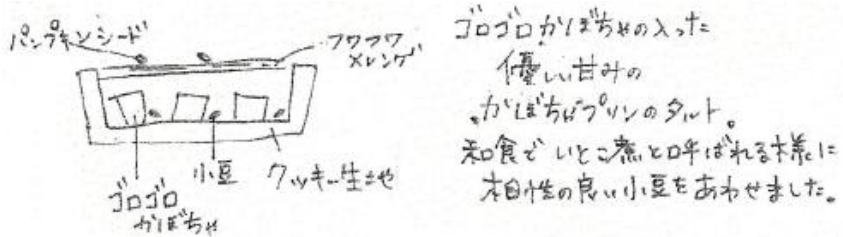 パンプキンシード
フワフワ
メレンゲ
ゴロゴロ
かぼちゃ
小豆
クッキー生地
ゴロゴロかぼちゃの入った
優しい甘みの
かぼちゃプリンのタルト。
和食でいとこ煮と呼ばれる様に
相性の良い小豆をあわせました。